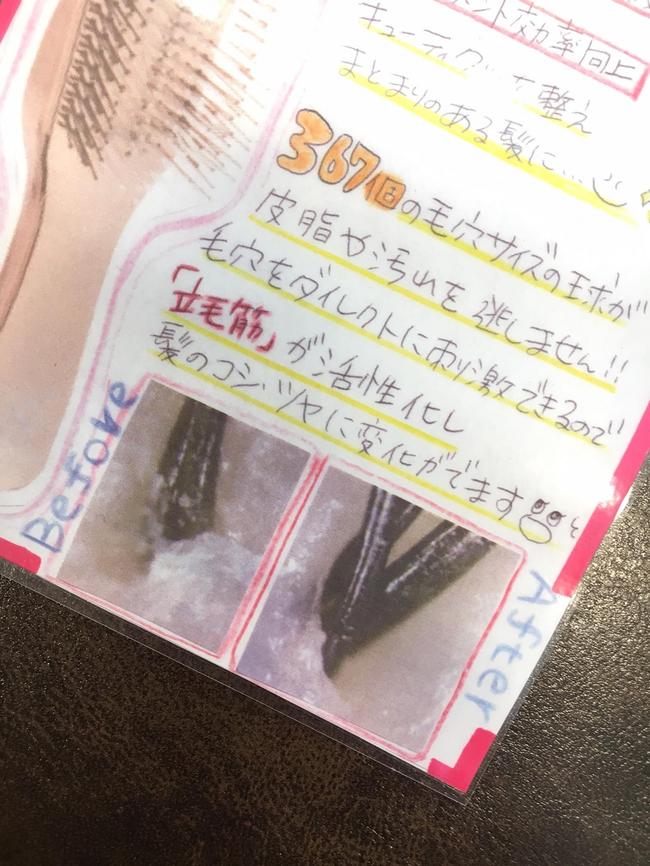 効率向上
整え
まとまりのある髪に…
367個の毛穴サイズの球が
皮脂や汚れを逃しません!!
毛穴をダイレクトに刺激できるので
「立毛筋」が活性化し
髪のコシ・ツヤに変化がでます
Before
After